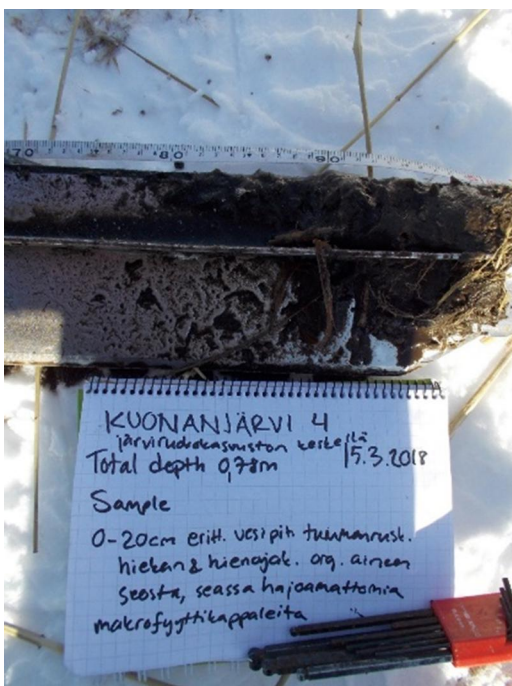 70 80 90
KUONANJÄRVI 4
järviruokokasvuston keskellä
Total depth 0,78m 15.3.2018
Sample
0-20cm eritt. vesipit. tummanrusk.
hiekan & hienojak. org. aineen
seosta, seassa hajoamattomia
makrofyyttikappaleita